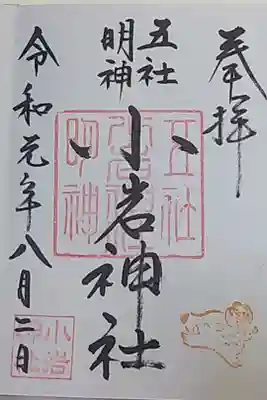 奉拝
五社
明神
小岩神社
令和元年八月二日
五社
小岩神社
明神